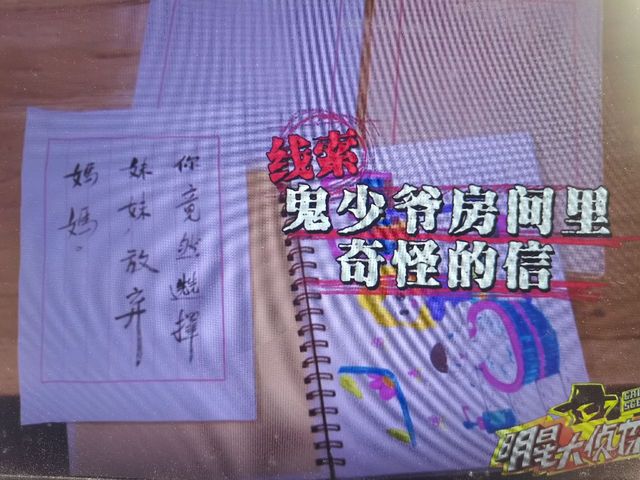 线索
鬼少爷房间里
奇怪的信
你竟然選擇
妹妹放弃
媽媽。
明星大侦探